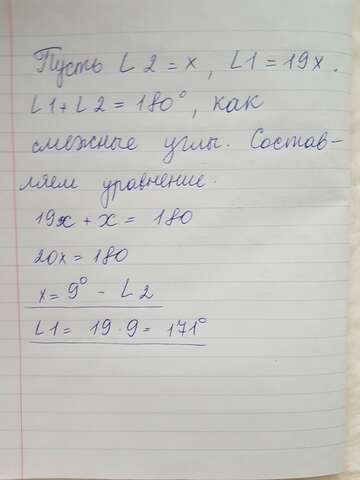 Пусть ∠2 = x, ∠1 = 19x.
∠1 + ∠2 = 180°, как
смежные углы. Состав-
ляем уравнение.
19x + x = 180
20x = 180
x = 9° - ∠2
∠1 = 19 · 9 = 171°